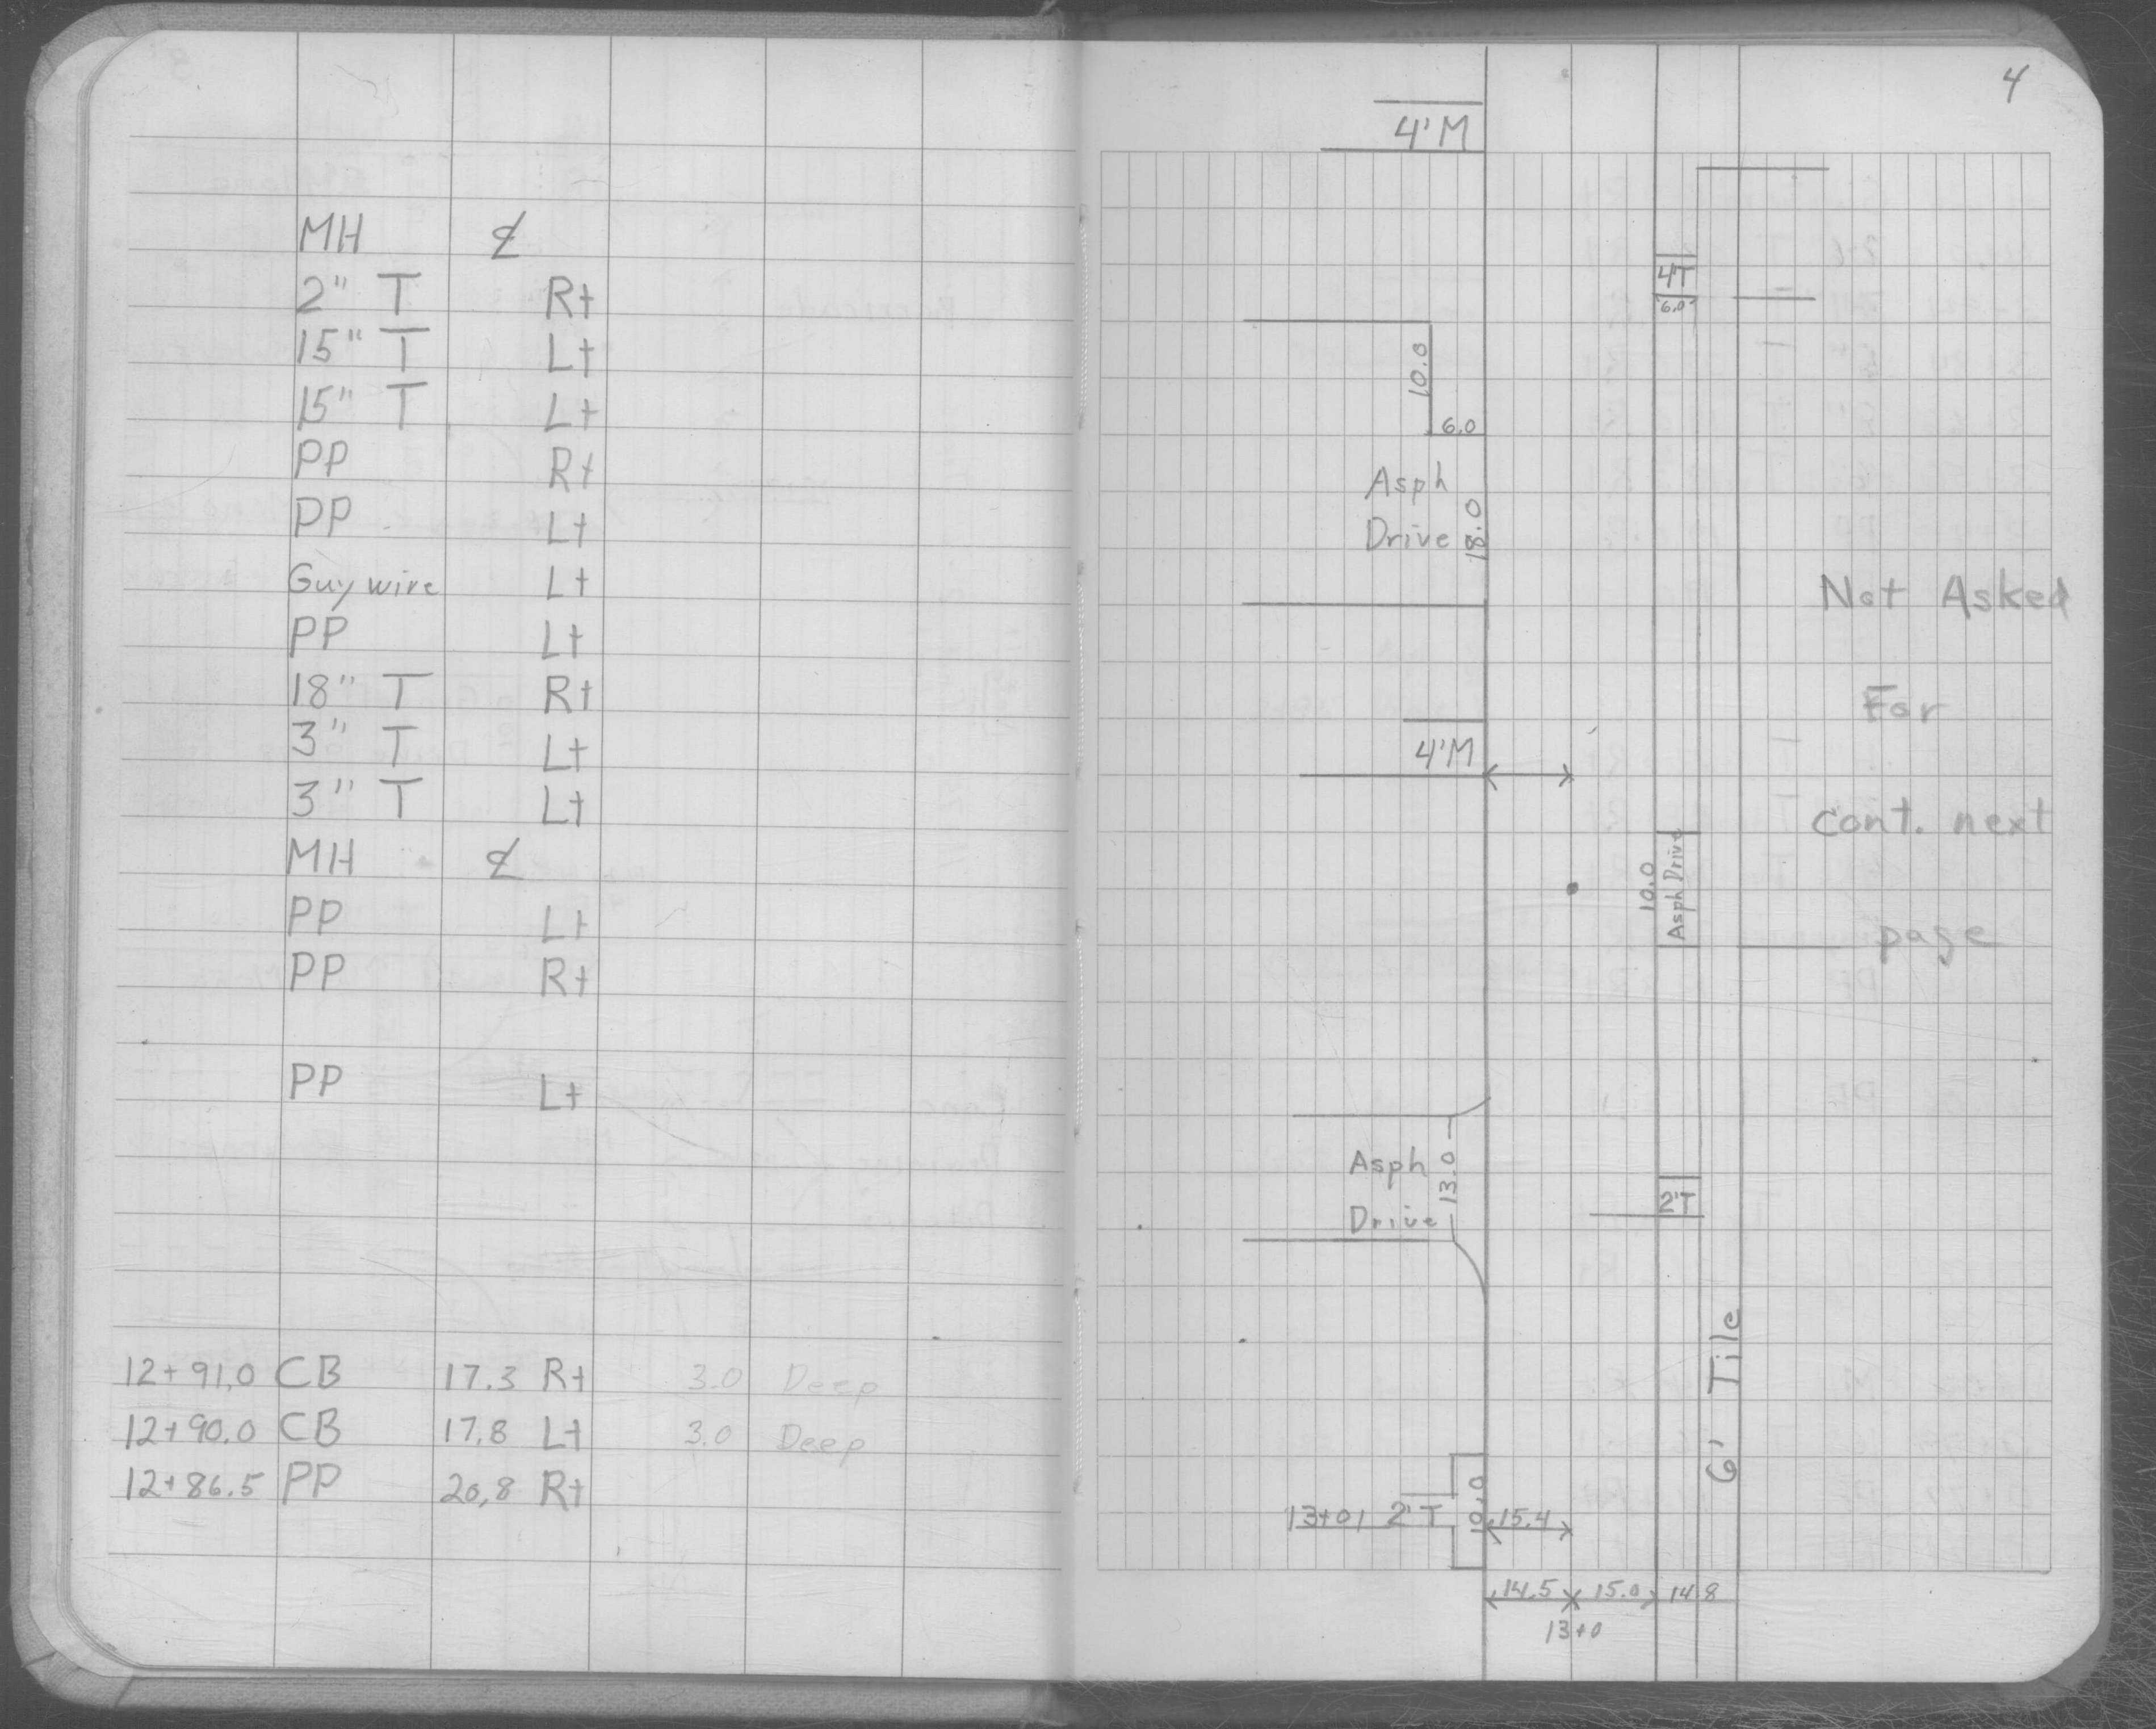 MH ℄
2" T Rt
15" T Lt
15" T Lt
PP Rt
PP Lt
Guy wire Lt
PP Lt
18" T Rt
3" T Lt
3" T Lt
MH ℄
PP Lt
PP Rt
PP Lt
12+91.0 CB 17.3 Rt 3.0 Deep
12+90.0 CB 17.8 Lt 3.0 Deep
12+86.5 PP 20.8 Rt
4
4'M
4T
6.0
10.0
6.0
Asph
Drive 18.0
Not Asked
For
4'M
cont. next
10.0
Asph Drive
page
Asph
Drive
13.0
2'T
6' Tile
13+01 2'T 10.0 15.4
14.5 15.0 14.8
13+0